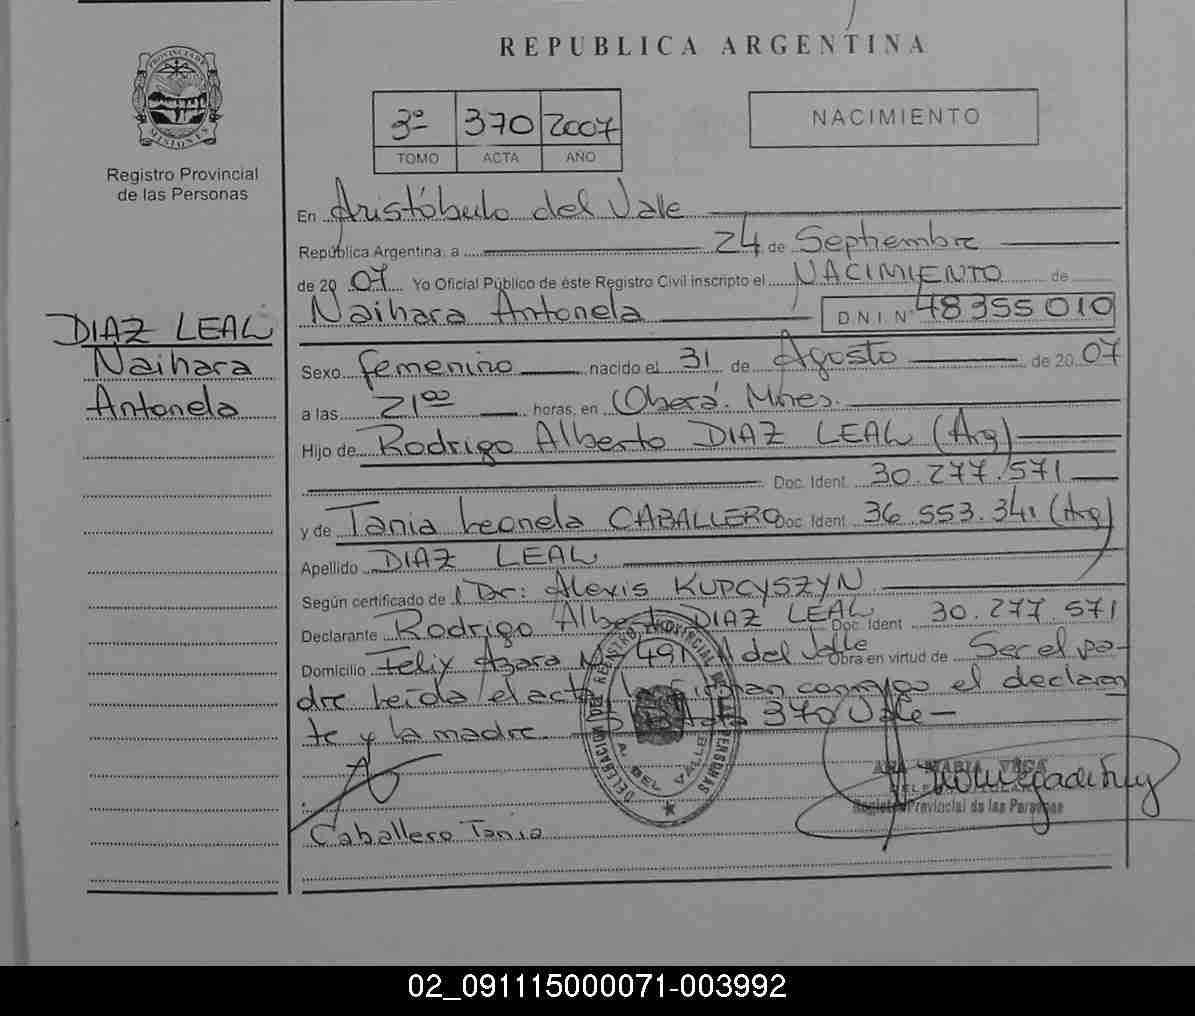 REPUBLICA ARGENTINA
PROVINCIA DE MISIONES
Registro Provincial
de las Personas
3º 370 2007
TOMO ACTA AÑO
NACIMIENTO
En Aristóbulo del Valle
República Argentina, a 24 de Septiembre
de 20 07 Yo Oficial Público de éste Registro Civil inscripto el NACIMIENTO de
Naihara Antonela D.N.I. Nº 48355010
DIAZ LEAL
Naihara
Antonela
Sexo femenino nacido el 31 de Agosto de 20 07
a las 21⁰⁰ horas, en Oberá. Mnes.
Hijo de Rodrigo Alberto DIAZ LEAL (Arg)
Doc. Ident. 30.277.571
y de Tania Leonela CABALLERO Doc. Ident. 36.553.341 (Arg)
Apellido DIAZ LEAL
Según certificado de Dr: Alexis KUPCYSZYN
Declarante Rodrigo Alberto DIAZ LEAL Doc. Ident 30.277.571
Domicilio Felix Azara Nº 491 A del Valle Obra en virtud de Ser el pa-
dre Leída el acta la firman conmigo el declaran
te y la madre. 370 Vale-
DELEGACION REGISTRO PROVINCIAL DE LAS PERSONAS
A. DEL VALLE
ANA MARIA VEGA
Registro Provincial de las Personas
Caballero Tania
02_091115000071-003992